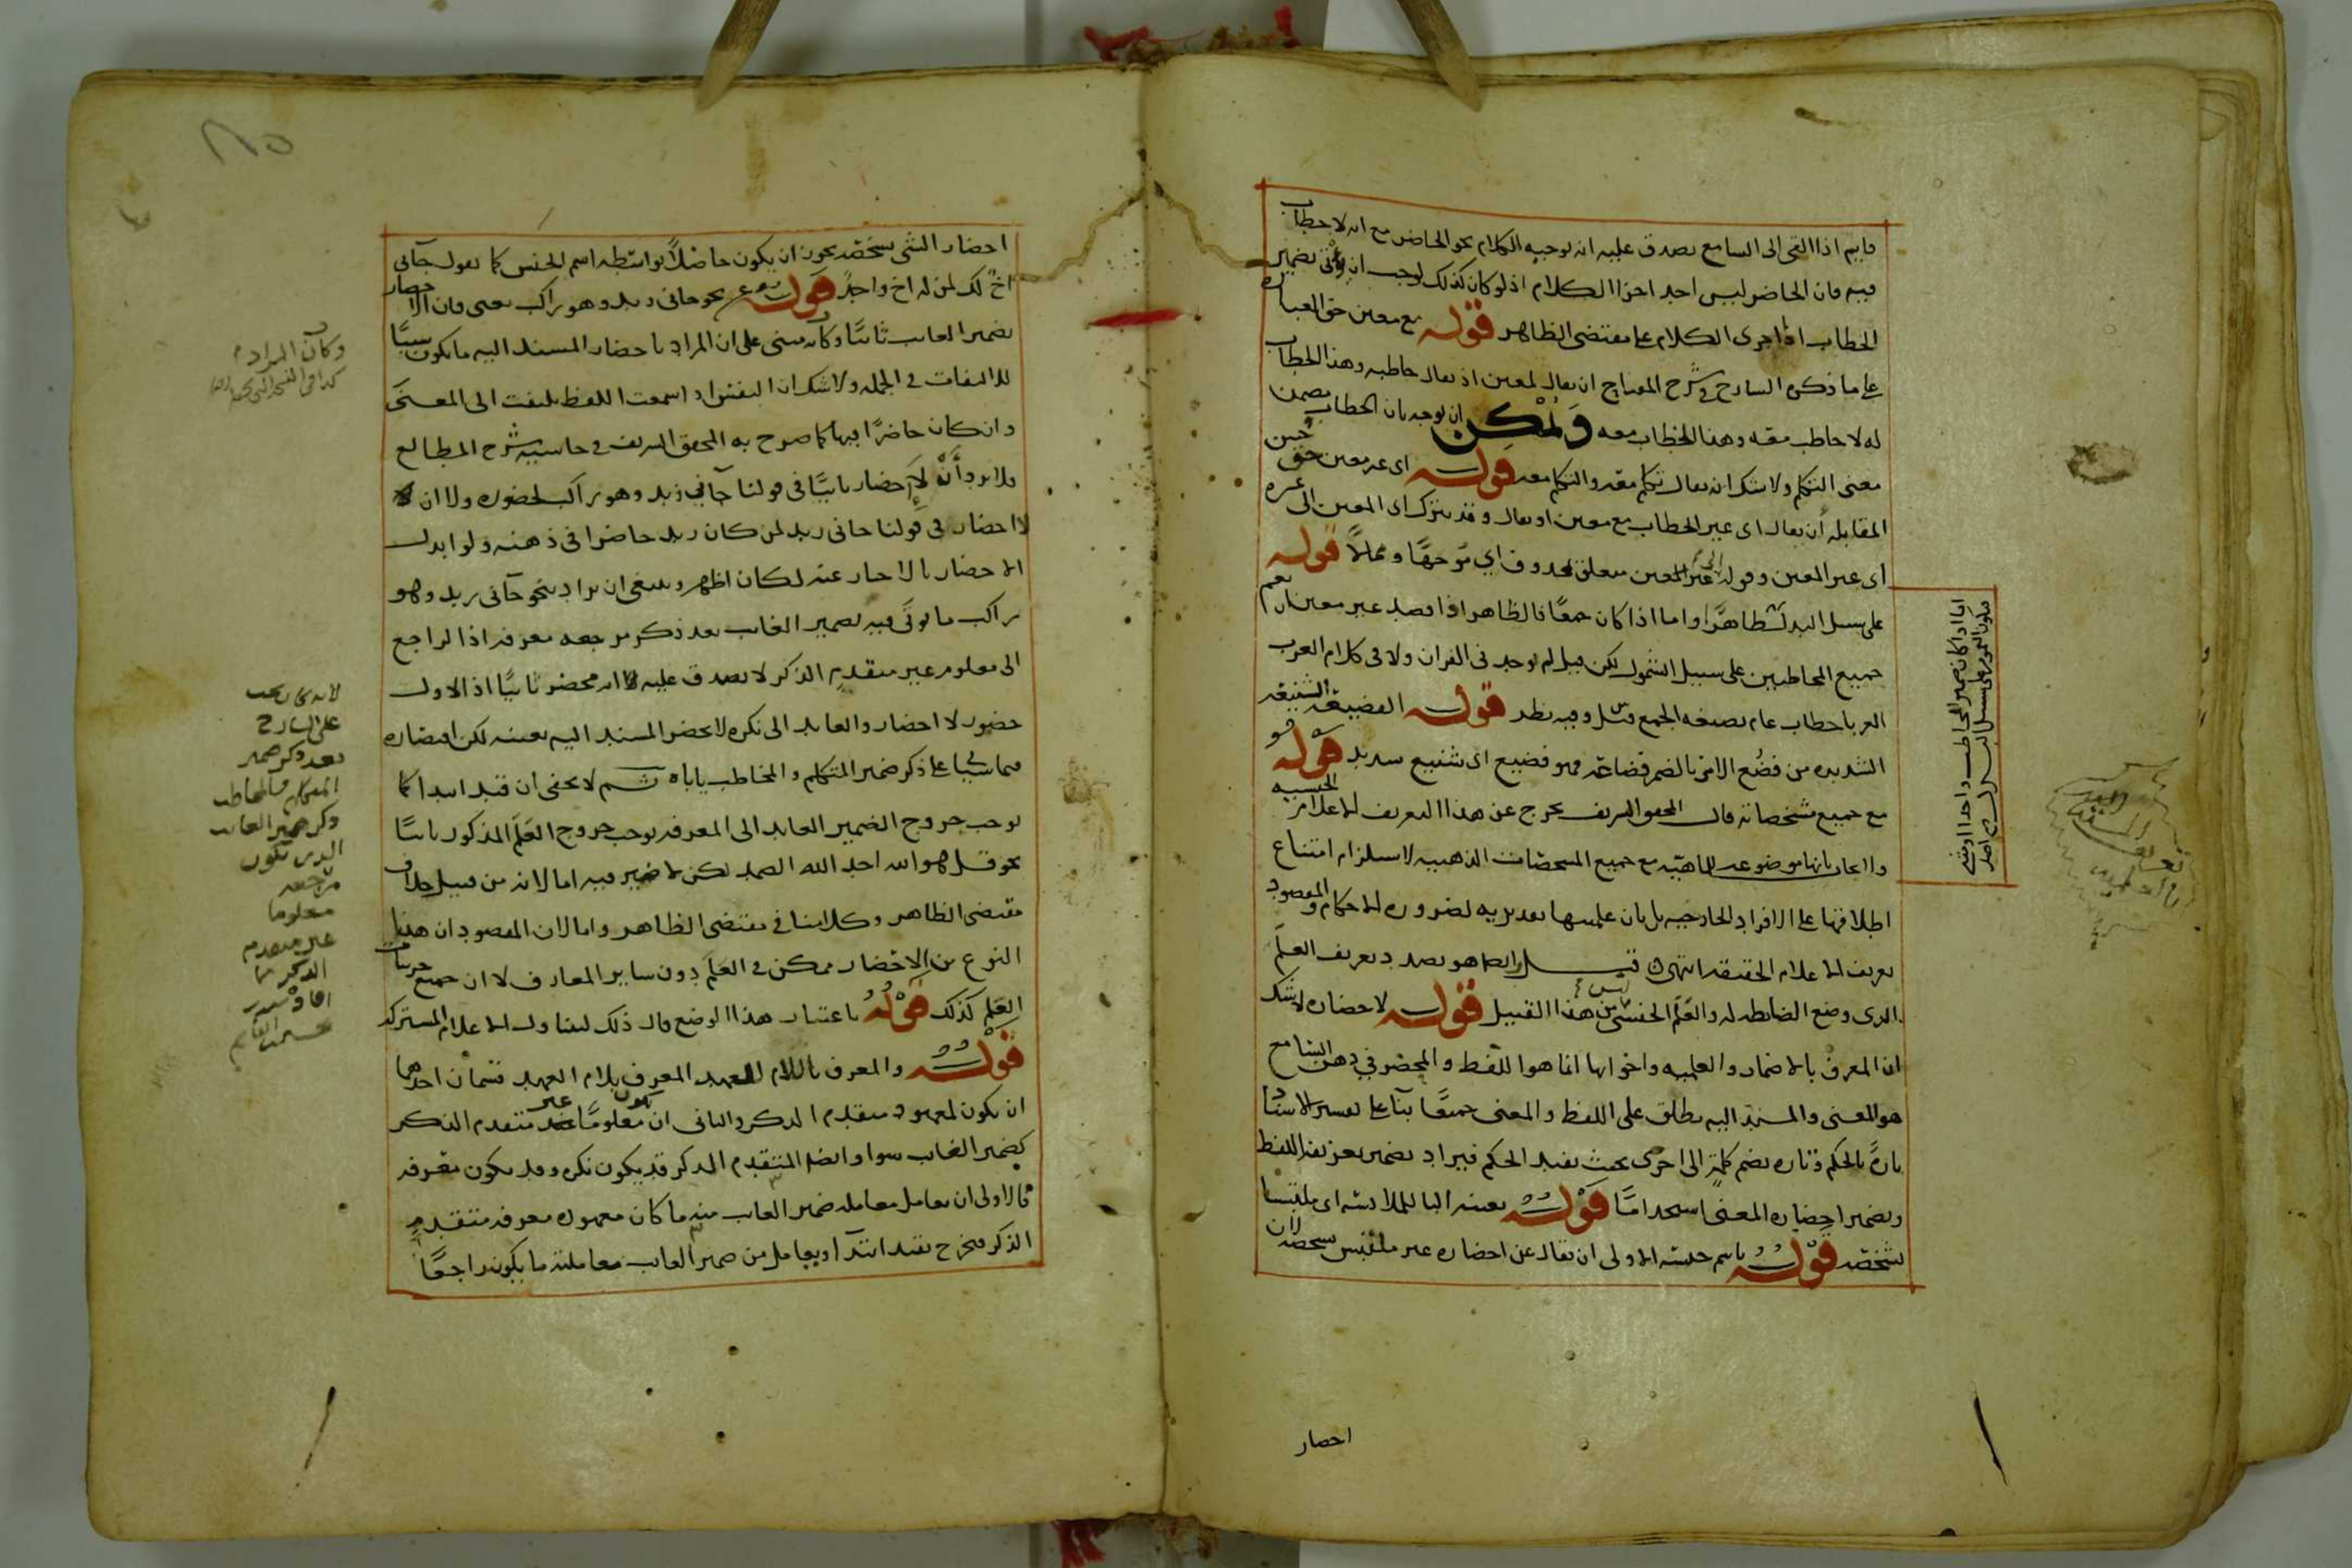 قايم اذا القى الى السامع يصدق عليه انه توجيه الكلام نحو الحاضر مع انه لا خطاب
فيه فان الحاضر ليس احد اجزا الكلام اذ لو كان كذلك لوجب ان يؤتى بضمير
الخطاب اذا اجرى الكلام على مقتضى الظاهر قوله مع معين حق العبارة
على ما ذكره الشارح في شرح المفتاح ان يقال لمعين اذ يقال خاطبه وهذا الخطاب
له لا خاطب معه وهذا الخطاب معه ويمكن ان يوجه بان الخطاب يضمن
معنى التكلم ولا شك انه يقال تكلم معه والتكلم معه قوله اى غير معين حق حين
المقابلة ان يقال اى غير الخطاب مع معين او يقال وقد يترك اى المعين الى غيره
اى غير المعين وقوله الى غير المعين متعلق بمحذوف اي موجها و ممالا قوله
على سبيل البدل ظاهرا واما اذا كان جمعا فالظاهر اذا قصد غير معين ان يعم
جميع المخاطبين على سبيل الشمول لكن قيل لم يوجد فى القران ولا فى كلام العرب
العربا خطاب عام بصيغه الجمع وفيه نظر قوله الفضيعة الشنيعة
الشديدة من فضُع الامر بالضم فضاعة فهو فضيع اى شنيع شديد قوله
مع جميع مشخصاته قال المحقق الشريف يخرج عن هذا التعريف الاعلام الجنسيه
بانها موضوعه للماهيه مع جميع المشخصات الذهنيه لاستلزام امتناع
اطلاقها على الافراد الخارجيه بل بان علميتها تقديريه لضرورة الاحكام والمقصود
تعريف الاعلام الحقيقه انتهى قيل هو بصدد تعريف العلم
الذى وضع الضابطه له والعَلَم الجنسى ليس من هذا القبيل قوله لاحضاره لا شك
ان المعرف بالاضمار والعلميه واخواتها انما هو اللفظ والمحضر في ذهن السامع
هو المعنى والمسند اليه يطلق على اللفظ والمعنى جميعا بنآ على تفسير الاسناد
تارة بالحكم وتاره بضم كلمة الى اخرى بحيث يفيد الحكم فيراد بضمير تعريفه اللفظ
وبضمير احضاره المعنى استخداما قوله بعينه البا للملابسه اى ملتبسا
بشخصه قوله باسم جنسه الاولى ان يقال عن احضاره غير ملتبس بشخصه لان
احضار
اما اذا كان ضمير المخاطب واحدا او مثنى
فيكون العموم على سبيل البدل
احضار الشى بشخصه يجوز ان يكون حاصلا بواسطه اسم الجنس كما تقول جآنى
اخٌ لك لمن له اخ واحد قوله نحو جانى زيد وهو راكب يعنى فان الاحضار
بضمير الغايب ثانيًا وكأنه مبنى على ان المراد باحضار المسند اليه ما يكون سببًا
للالتفات فى الجمله ولا شك ان النفس اذا سمعت اللفظ يلتفت الى المعنى
وان كان حاضرًا فيها كما صرح به المحقق الشريف فى حاشية شرح المطالع
فلا يرد أنّه لا احضار ثانيًا فى قولنا جآني زيد وهو راكب لحضوره ولا ان
لا احضار فى قولنا جانى زيد لمن كان زيد حاضرا فى ذهنه ولو ابدل
الاحضار بالاخبار عنه لكان اظهر وينبغى ان يراد بنحو جآنى زيد وهو
راكب ما يوتى فيه بضمير الغايب بعد ذكر مرجعه معرفه اذ الراجع
الى معلوم غير متقدم الذكر لا يصدق عليه انه محضر ثانيًا اذ الاول
حضور لا احضار والعايد الى نكره لا يحضر المسند اليه بعينه لكن اقتصاره
فيما سيجيا على ذكر ضمير المتكلم والمخاطب ياباه ثم لا يخفى ان قيد ابتدا كما
يوجب خروج الضمير العايد الى المعرفه يوجب خروج العَلَم المذكور ثانيًا
نحو قل هو الله احد الله الصمد لكن لا ضير فيه اما لانه من قبيل خلاف
مقتضى الظاهر وكلامنا فى مقتضى الظاهر واما لان المقصود ان هذا
النوع من الاحضار ممكن فى العَلَم دون ساير المعارف لا ان جميع جزييات
العَلَم كذلك قوله باعتبار هذا الوضع قال ذلك ليتناول الاعلام المشتركة
قوله والمعرف باللام العهد المعرف بلام العهد قسمان احدهما
ان يكون المعهود متقدم الذكر والثانى ان يكون معلومًا غير متقدم الذكر
كضمير الغايب سوا وايضا المتقدم الذكر قد يكون نكره وقد يكون معرفه
فالاولى ان يعامل معامله ضمير الغايب منه ما كان معهوده معرفه متقدم
الذكر فيخرج بقيد ابتدآ ويعامل من ضمير الغايب معاملته ما يكون راجعًا
وكأن المراد
لانه كان يجب
على الشارح
بعد ذكر ضمير
المتكلم والمخاطب
ذكر ضمير الغايب
الذى يكون
مرجعه
معلوما
غير متقدم
الذكر